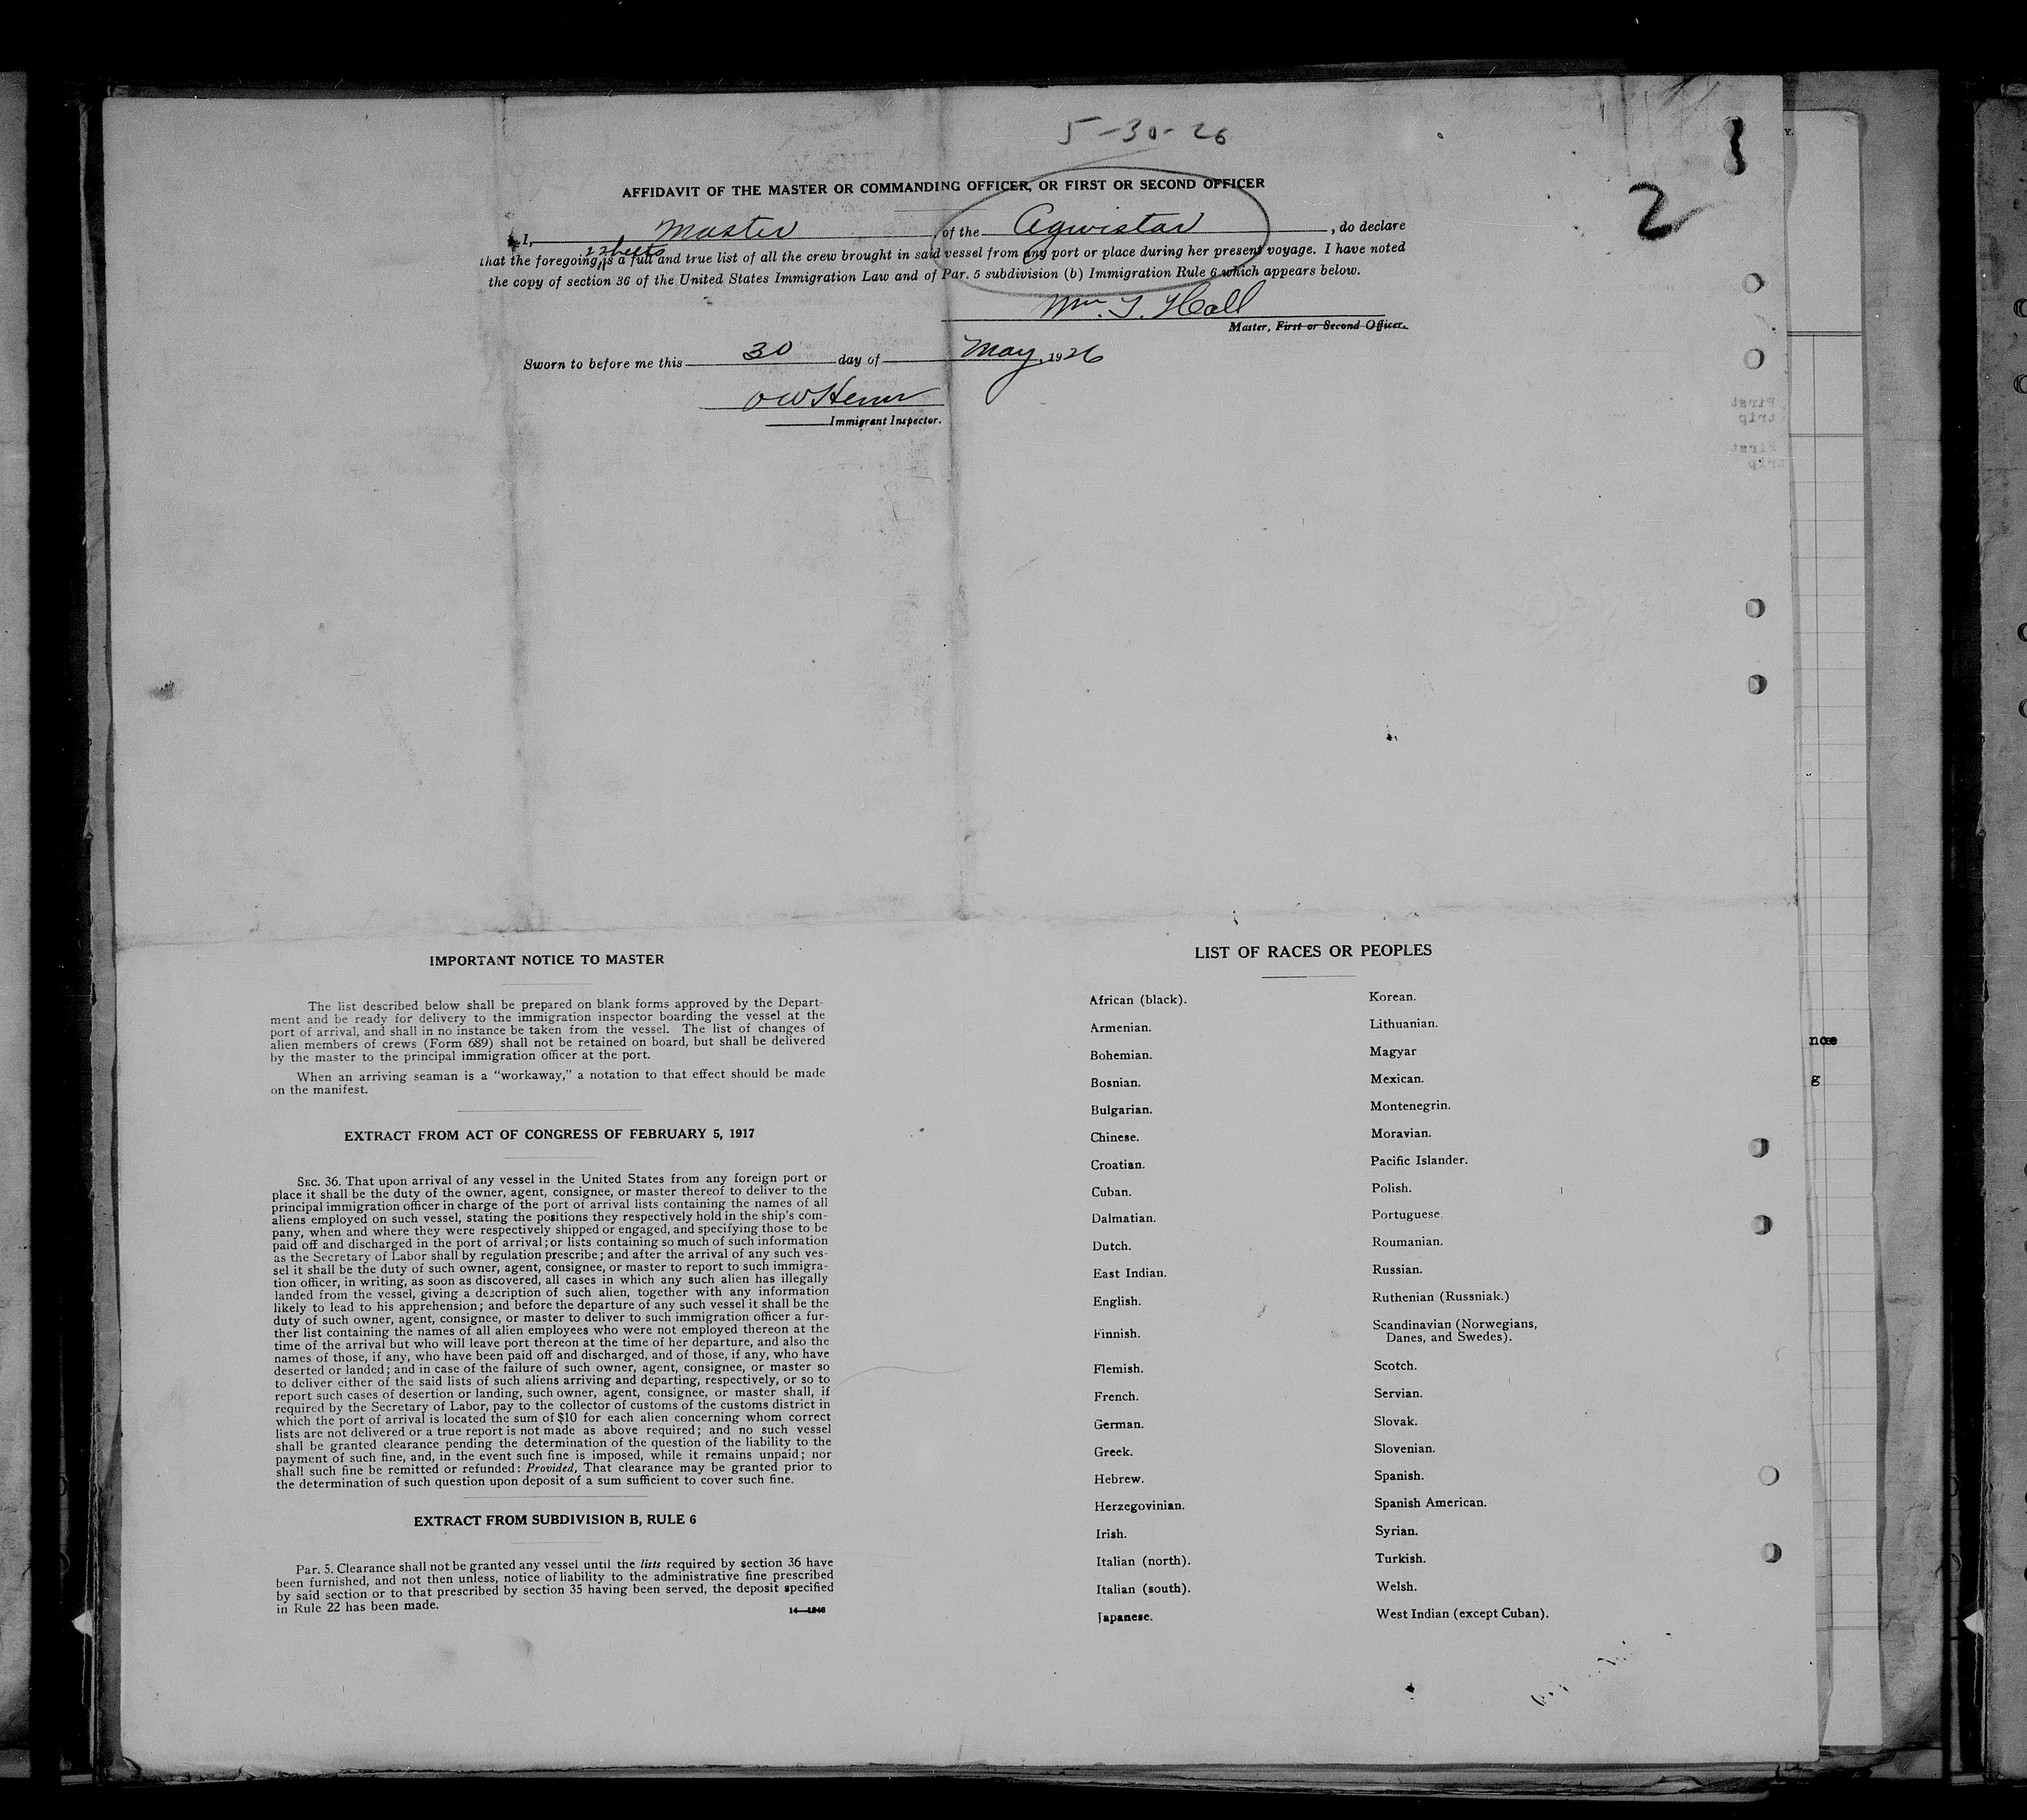 5-30-26
2
AFFIDAVIT OF THE MASTER OR COMMANDING OFFICER, OR FIRST OR SECOND OFFICER
I, Master, of the Agwistar, do declare
2 sheets
that the foregoing is a full and true list of all the crew brought in said vessel from any port or place during her present voyage. I have noted
the copy of section 36 of the United States Immigration Law and of Par. 5 subdivision (b) Immigration Rule 6 which appears below.
Wm. T. Hall
Master, First or Second Officer.
Sworn to before me this 30 day of May, 1926
O W
Immigrant Inspector.
IMPORTANT NOTICE TO MASTER
The list described below shall be prepared on blank forms approved by the Depart-
ment and be ready for delivery to the immigration inspector boarding the vessel at the
port of arrival, and shall in no instance be taken from the vessel. The list of changes of
alien members of crews (Form 689) shall not be retained on board, but shall be delivered
by the master to the principal immigration officer at the port.
When an arriving seaman is a "workaway," a notation to that effect should be made
on the manifest.
EXTRACT FROM ACT OF CONGRESS OF FEBRUARY 5, 1917
SEC. 36. That upon arrival of any vessel in the United States from any foreign port or
place it shall be the duty of the owner, agent, consignee, or master thereof to deliver to the
principal immigration officer in charge of the port of arrival lists containing the names of all
aliens employed on such vessel, stating the positions they respectively hold in the ship's com-
pany, when and where they were respectively shipped or engaged, and specifying those to be
paid off and discharged in the port of arrival; or lists containing so much of such information
as the Secretary of Labor shall by regulation prescribe; and after the arrival of any such ves-
sel it shall be the duty of such owner, agent, consignee, or master to report to such immigra-
tion officer, in writing, as soon as discovered, all cases in which any such alien has illegally
landed from the vessel, giving a description of such alien, together with any information
likely to lead to his apprehension; and before the departure of any such vessel it shall be the
duty of such owner, agent, consignee, or master to deliver to such immigration officer a fur-
ther list containing the names of all alien employees who were not employed thereon at the
time of the arrival but who will leave port thereon at the time of her departure, and also the
names of those, if any, who have been paid off and discharged, and of those, if any, who have
deserted or landed; and in case of the failure of such owner, agent, consignee, or master so
to deliver either of the said lists of such aliens arriving and departing, respectively, or so to
report such cases of desertion or landing, such owner, agent, consignee, or master shall, if
required by the Secretary of Labor, pay to the collector of customs of the customs district in
which the port of arrival is located the sum of $10 for each alien concerning whom correct
lists are not delivered or a true report is not made as above required; and no such vessel
shall be granted clearance pending the determination of the question of the liability to the
payment of such fine, and, in the event such fine is imposed, while it remains unpaid; nor
shall such fine be remitted or refunded: Provided, That clearance may be granted prior to
the determination of such question upon deposit of a sum sufficient to cover such fine.
EXTRACT FROM SUBDIVISION B, RULE 6
Par. 5. Clearance shall not be granted any vessel until the lists required by section 36 have
been furnished, and not then unless, notice of liability to the administrative fine prescribed
by said section or to that prescribed by section 35 having been served, the deposit specified
in Rule 22 has been made.
LIST OF RACES OR PEOPLES
African (black).
Armenian.
Bohemian.
Bosnian.
Bulgarian.
Chinese.
Croatian.
Cuban.
Dalmatian.
Dutch.
East Indian.
English.
Finnish.
Flemish.
French.
German.
Greek.
Hebrew.
Herzegovinian.
Irish.
Italian (north).
Italian (south).
Japanese.
Korean.
Lithuanian.
Magyar
Mexican.
Montenegrin.
Moravian.
Pacific Islander.
Polish.
Portuguese
Roumanian.
Russian.
Ruthenian (Russniak.)
Scandinavian (Norwegians,
Danes, and Swedes).
Scotch.
Servian.
Slovak.
Slovenian.
Spanish.
Spanish American.
Syrian.
Turkish.
Welsh.
West Indian (except Cuban).